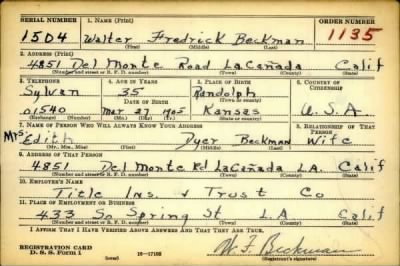 SERIAL NUMBER 1. NAME (Print) ORDER NUMBER
1504 Walter Fredrick Beckman 1135
(First) (Middle) (Last)
2. ADDRESS (Print)
4851 Del Monte Road LaCañada Calif
(Number and street or R. F. D. number) (Town) (County) (State)
3. TELEPHONE 4. AGE IN YEARS 5. PLACE OF BIRTH 6. COUNTRY OF CITIZENSHIP
Sylvan 35 Randolph
DATE OF BIRTH (Town or county)
01540 Mar 27 1905 Kansas U.S.A.
(Exchange) (Number) (Mo.) (Day) (Yr.) (State or country)
7. NAME OF PERSON WHO WILL ALWAYS KNOW YOUR ADDRESS 8. RELATIONSHIP OF THAT PERSON
Mrs Edith Dyer Beckman Wife
(Mr., Mrs., Miss) (First) (Middle) (Last)
9. ADDRESS OF THAT PERSON
4851 Del Monte Rd LaCañada L.A. Calif
(Number and street or R. F. D. number) (Town) (County) (State)
10. EMPLOYER'S NAME
Title Ins. & Trust Co
11. PLACE OF EMPLOYMENT OR BUSINESS
433 So Spring St L.A Calif
(Number and street or R. F. D. number) (Town) (County) (State)
I AFFIRM THAT I HAVE VERIFIED ABOVE ANSWERS AND THAT THEY ARE TRUE.
REGISTRATION CARD
D. S. S. Form 1 W. F. Beckman
(Registrant's signature)